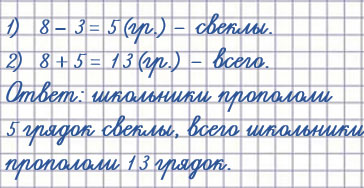 1) 8 - 3 = 5 (гр.) - свеклы.
2) 8 + 5 = 13 (гр.) - всего.
Ответ: школьники пропололи
5 грядок свеклы, всего школьники
пропололи 13 грядок.